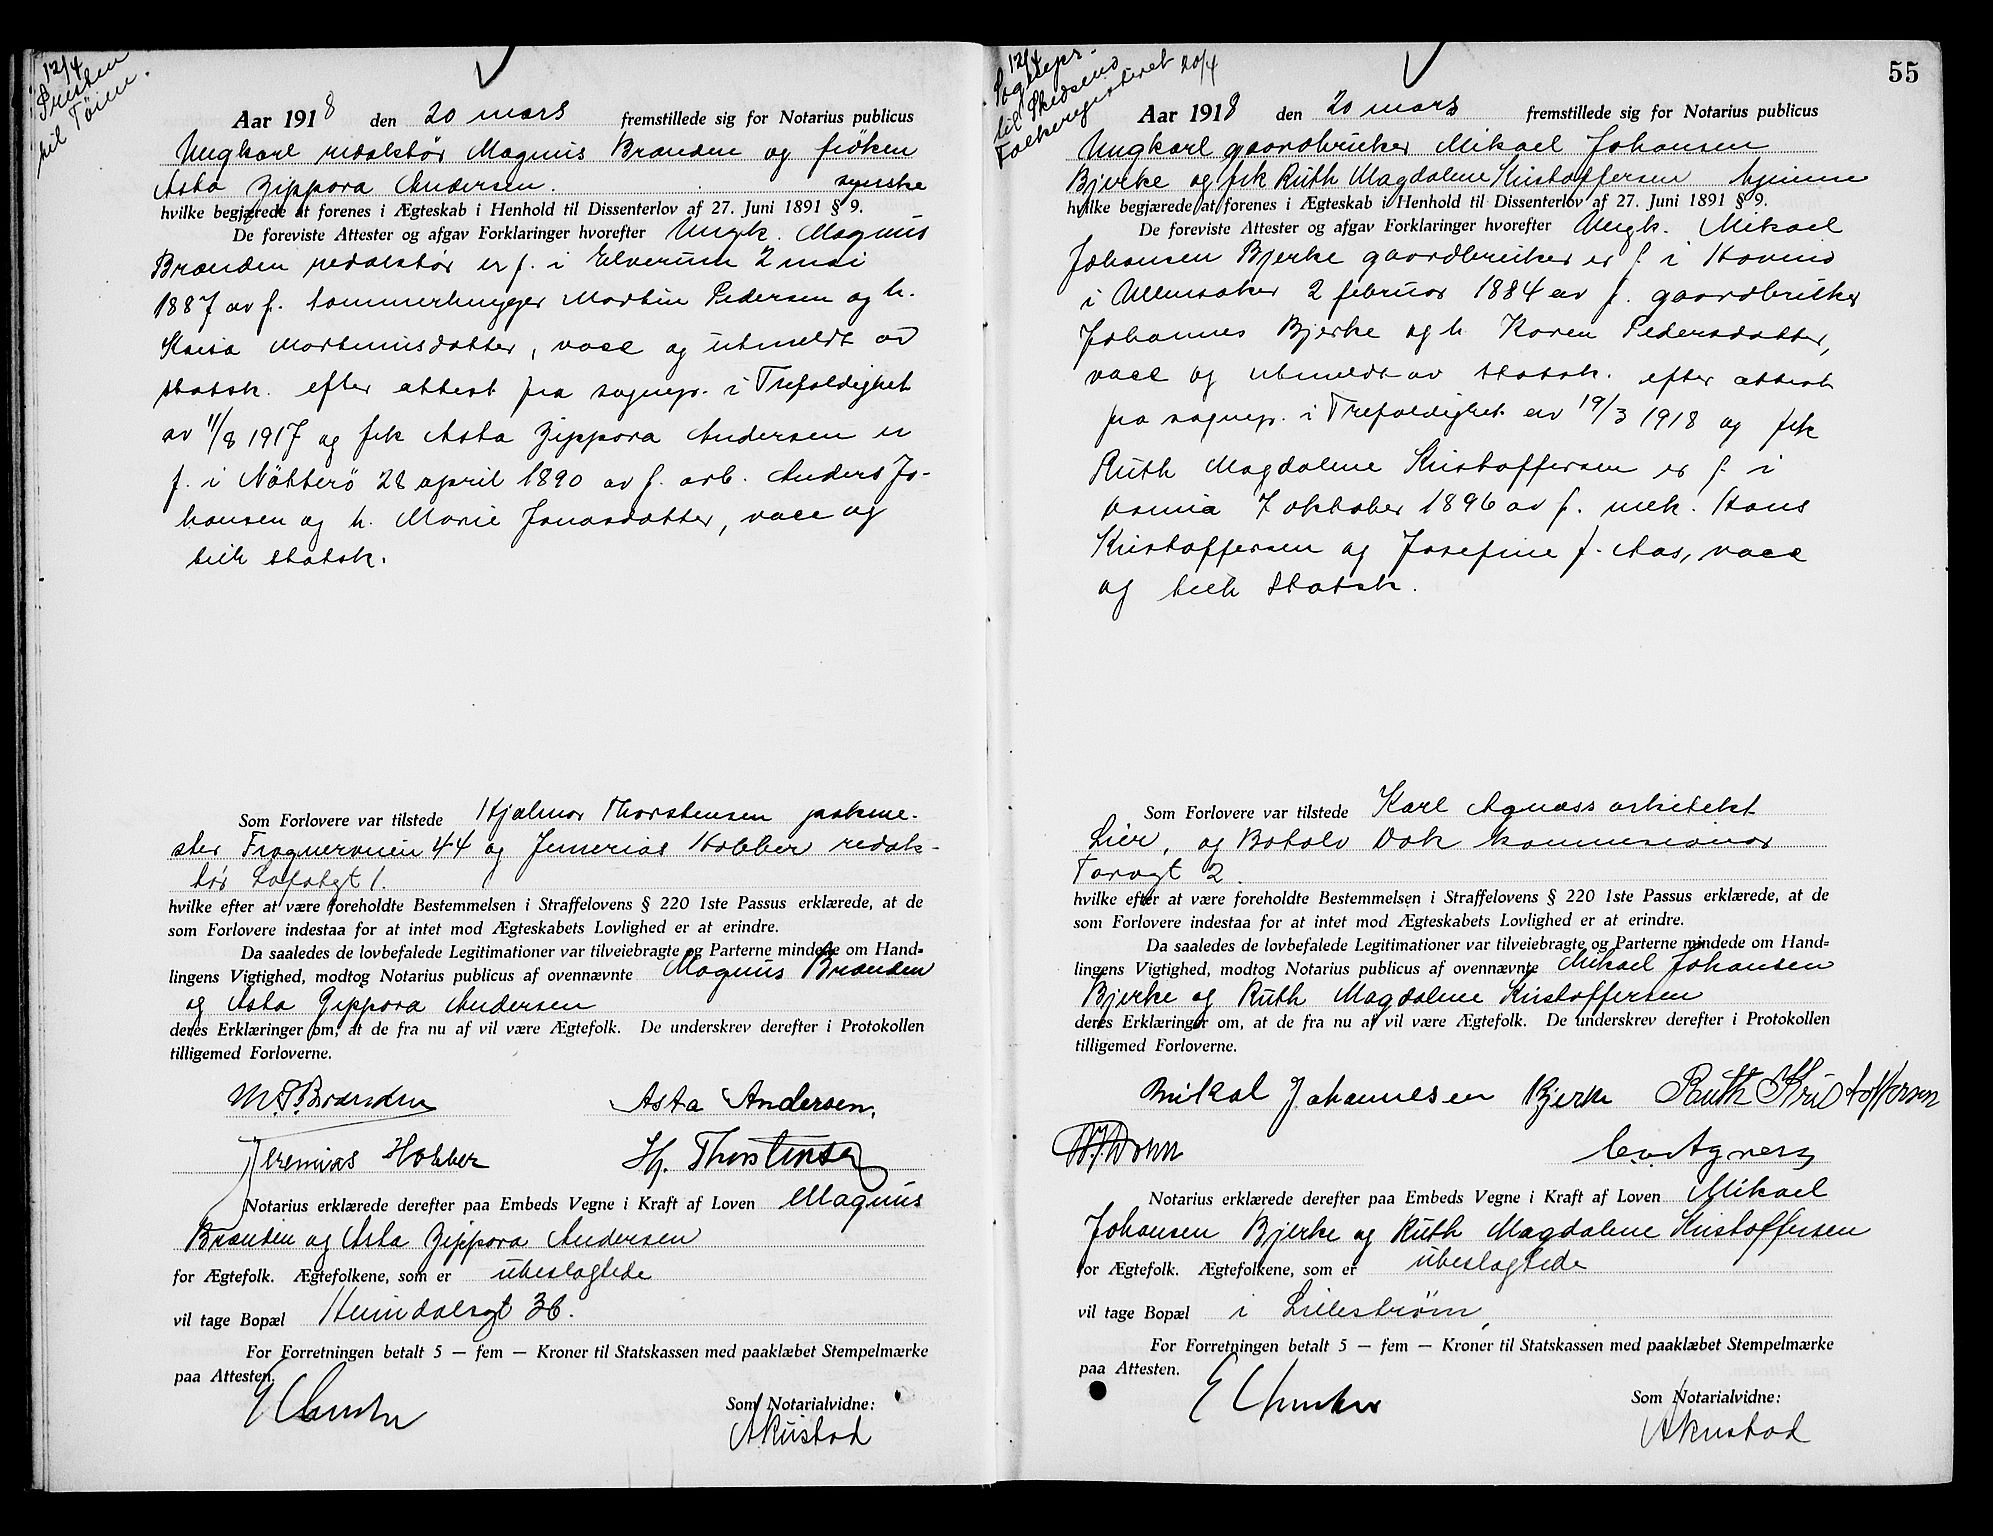 12/4
Presten
til Tøien.
Aar 1918 den 20 mars fremstillede sig for Notarius publicus
Ungkarl redaktør Magnus Brænden og frøken
Asta Zippora Andersen.
hvilke begjærede at forenes i Ægteskab i Henhold til Dissenterlov af 27. Juni 1891 § 9.
De foreviste Attester og afgav Forklaringer hvorefter Ungk. Magnus
Brænden redaktør er f. i Elverum 2 mai
1887 av f. tømmerhugger Martin Pedersen og h.
Kaisa Martinusdatter, vacc og utmeldt av
statsk. efter attest fra sognepr. i Trefoldighet
av 11/8 1917 og frk Asta Zippora Andersen er
f. i Nøtterø 28 april 1890 av f. arb. Anders Jo-
hansen og h. Marie Jonasdatter, vacc og
tilh statsk.
Som Forlovere var tilstede Hjalmar Thorstensen pakme-
ster Frognerveien 44 og Jemerias Hobber redak-
tør Lofotgt 1.
hvilke efter at være foreholdte Bestemmelsen i Straffelovens § 220 1ste Passus erklærede, at de
som Forlovere indestaa for at intet mod Ægteskabets Lovlighed er at erindre.
Da saaledes de lovbefalede Legitimationer var tilveiebragte og Parterne mindede om Hand-
lingens Vigtighed, modtog Notarius publicus af ovennævnte Magnus Brænden
og Asta Zippora Andersen
deres Erklæringer om, at de fra nu af vil være Ægtefolk. De underskrev derefter i Protokollen
tilligemed Forloverne.
M. P. Brænden Asta Andersen.
Jeremias Hobber Hj. Thorstensen
Notarius erklærede derefter paa Embeds Vegne i Kraft af Loven Magnus
Brænden og Asta Zippora Andersen
for Ægtefolk. Ægtefolkene, som er ubeslægtede
vil tage Bopæl Heimdalsgt 36.
For Forretningen betalt 5 — fem — Kroner til Statskassen med paaklæbet Stempelmærke
paa Attesten.
Som Notarialvidne:
55
12/4
Sognepr.
til Skedsmo
Folkeregisteret 20/4
Aar 1918 den 20 mars fremstillede sig for Notarius publicus
Ungkarl gaardbruker Mikael Johansen
Bjerke og frk Ruth Magdalene Kristoffersen hjemme
hvilke begjærede at forenes i Ægteskab i Henhold til Dissenterlov af 27. Juni 1891 § 9.
De foreviste Attester og afgav Forklaringer hvorefter Ungk. Mikael
Johansen Bjerke gaardbruker er f. i Hovind
i Ullensaker 2 februar 1884 av f. gaardbruker
Johannes Bjerke og h. Karen Pedersdatter,
vacc og utmeldt av statsk. efter attest
fra sognepr. i Trefoldighet av 19/3 1918 og frk
Ruth Magdalene Kristoffersen er f. i
7 oktober 1896 av f. mek. Hans
Kristoffersen og Josefine f. Aas, vacc
og tilh statsk.
Som Forlovere var tilstede Karl Agnæss arkitekt
Lier, og Botolv kommisionær
Torvgt 2.
hvilke efter at være foreholdte Bestemmelsen i Straffelovens § 220 1ste Passus erklærede, at de
som Forlovere indestaa for at intet mod Ægteskabets Lovlighed er at erindre.
Da saaledes de lovbefalede Legitimationer var tilveiebragte og Parterne mindede om Hand-
lingens Vigtighed, modtog Notarius publicus af ovennævnte Mikael Johansen
Bjerke og Ruth Magdalene Kristoffersen
deres Erklæringer om, at de fra nu af vil være Ægtefolk. De underskrev derefter i Protokollen
tilligemed Forloverne.
Mikal Johannesen Bjerke Ruth Kristoffersen
Notarius erklærede derefter paa Embeds Vegne i Kraft af Loven Mikael
Johansen Bjerke og Ruth Magdalene Kristoffersen
for Ægtefolk. Ægtefolkene, som er ubeslægtede
vil tage Bopæl i Lillestrøm,
For Forretningen betalt 5 — fem — Kroner til Statskassen med paaklæbet Stempelmærke
paa Attesten.
Som Notarialvidne: